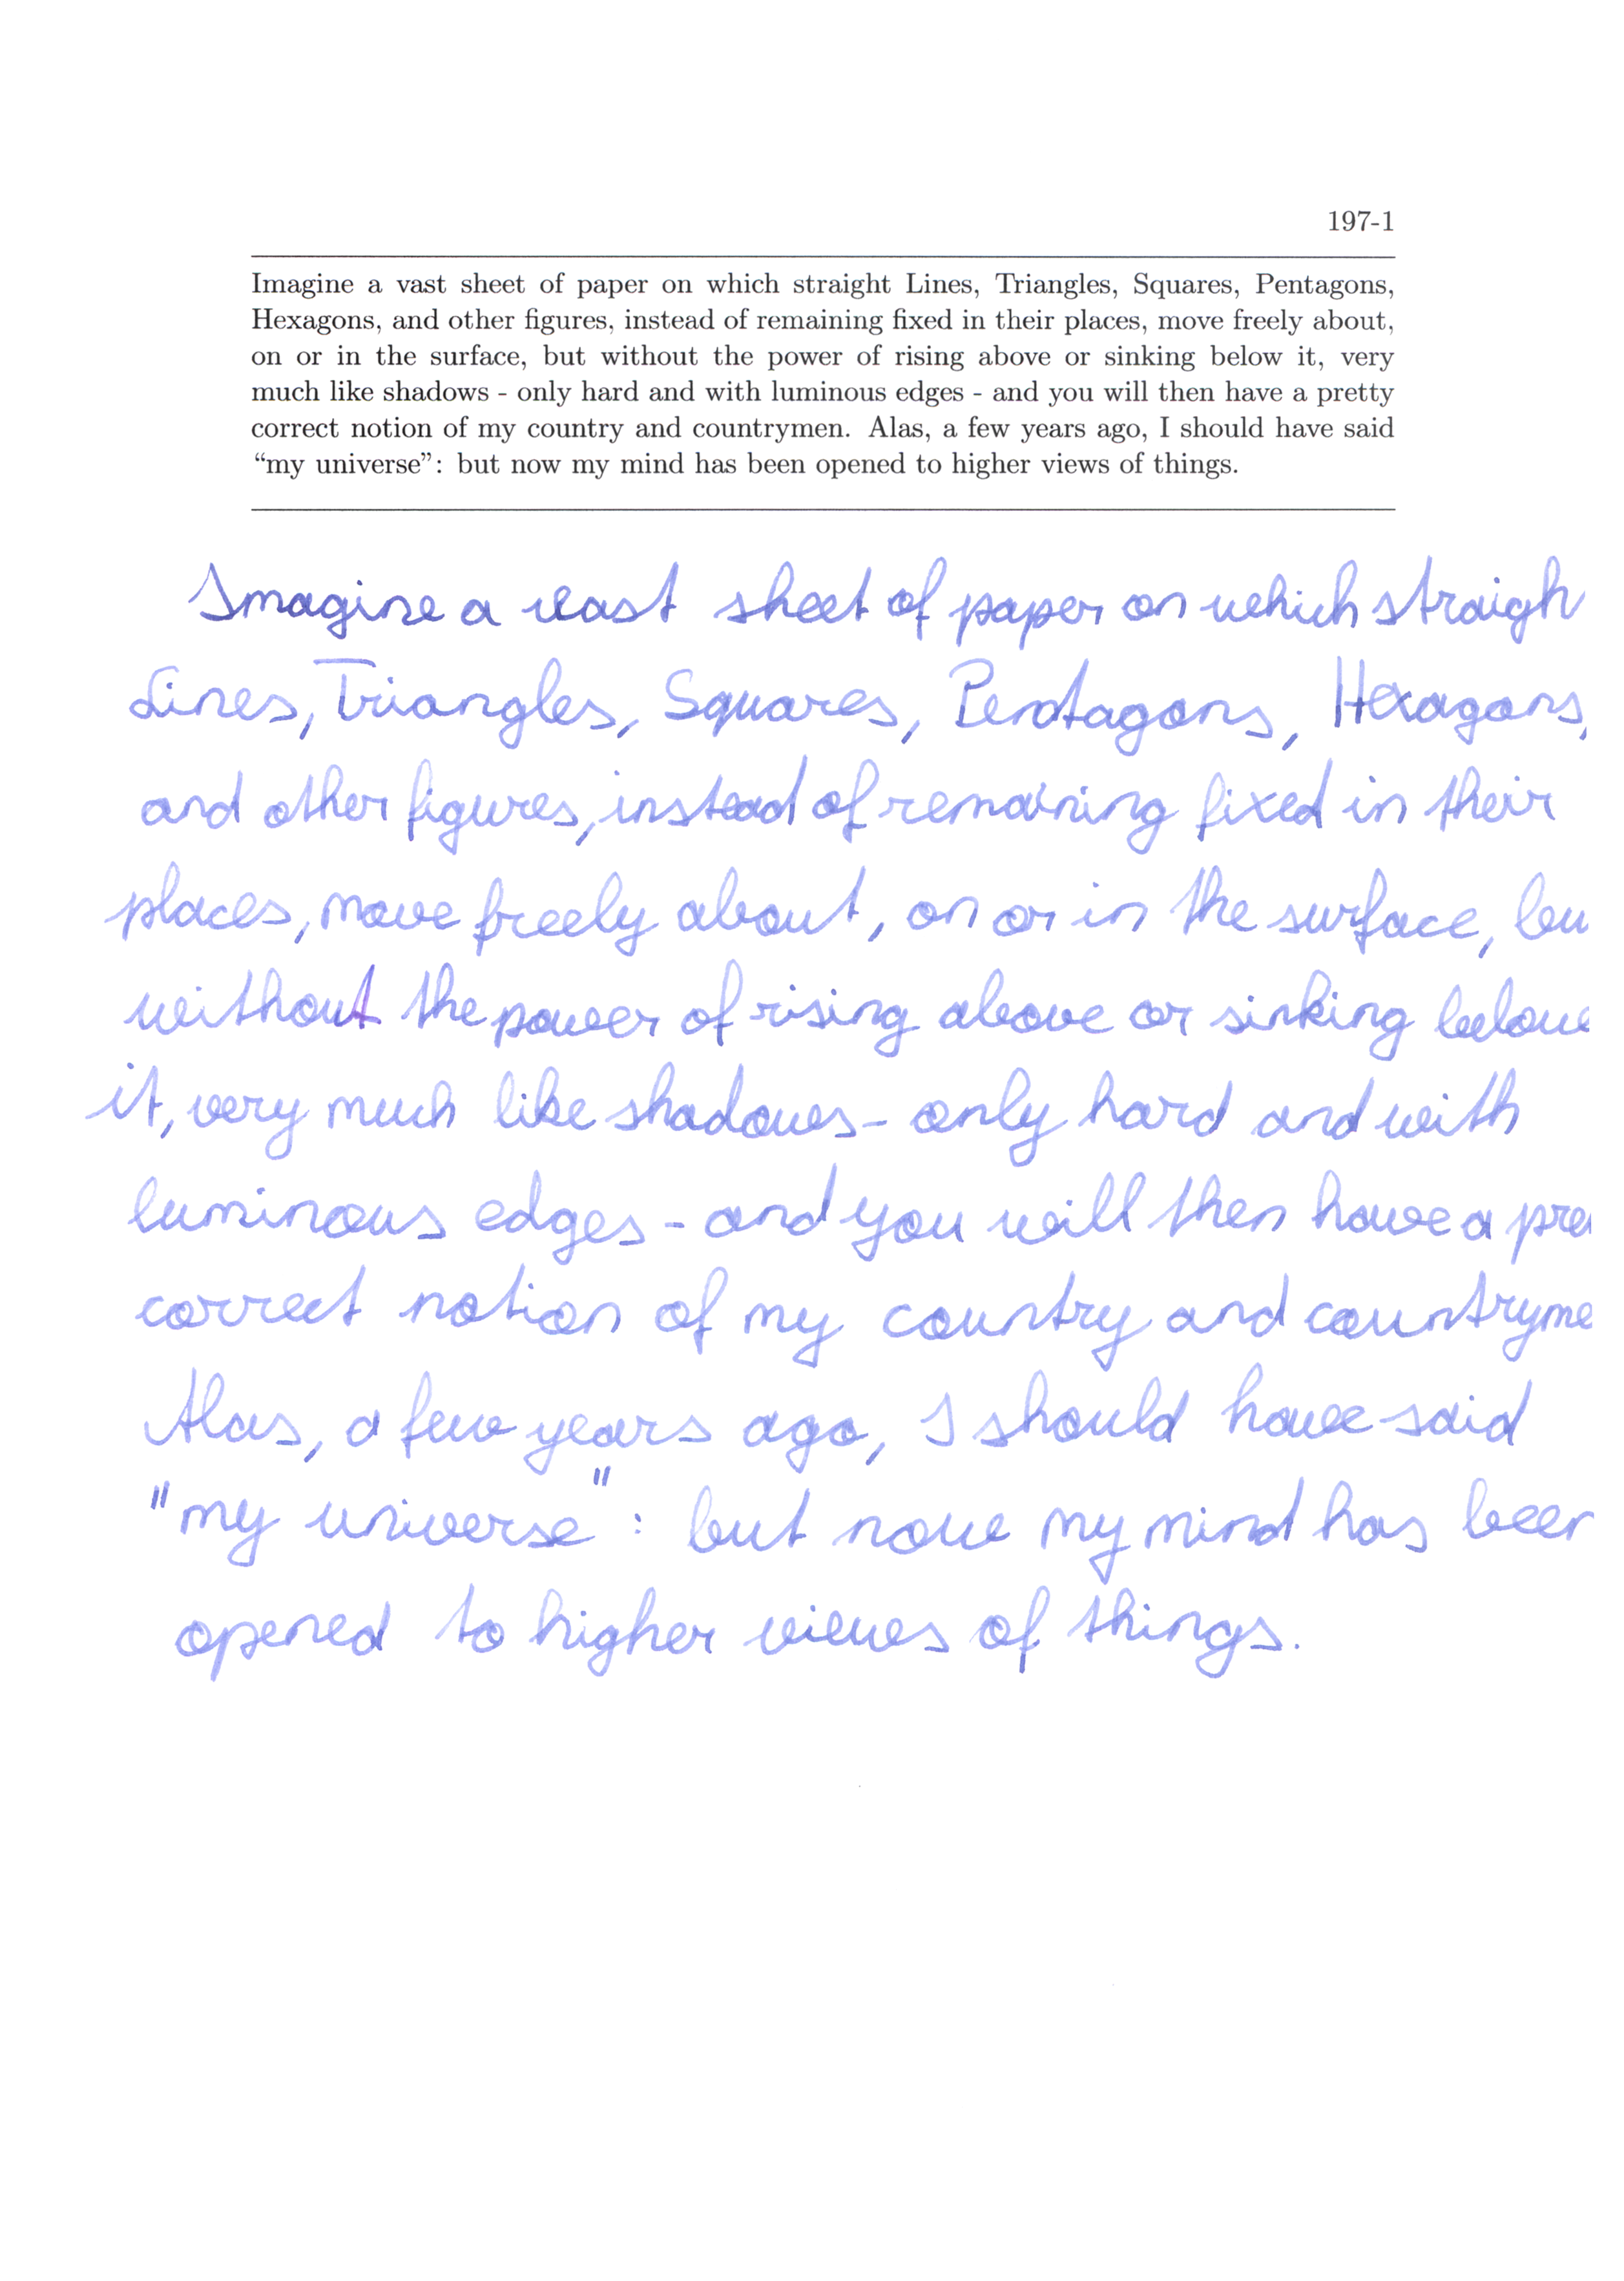 197-1
Imagine a vast sheet of paper on which straight Lines, Triangles, Squares, Pentagons,
Hexagons, and other figures, instead of remaining fixed in their places, move freely about,
on or in the surface, but without the power of rising above or sinking below it, very
much like shadows - only hard and with luminous edges - and you will then have a pretty
correct notion of my country and countrymen. Alas, a few years ago, I should have said
“my universe”: but now my mind has been opened to higher views of things.
Imagine a vast sheet of paper on which straigh
Lines, Triangles, Squares, Pentagons, Hexagons,
and other figures, instead of remaining fixed in their
places, move freely about, on or in the surface, bu
without the power of rising above or sinking below
it, very much like shadows - only hard and with
luminous edges - and you will then have a pre
correct notion of my country and countryme
Alas, a few years ago, I should have said
"my universe": but now my mind has been
opened to higher views of things.